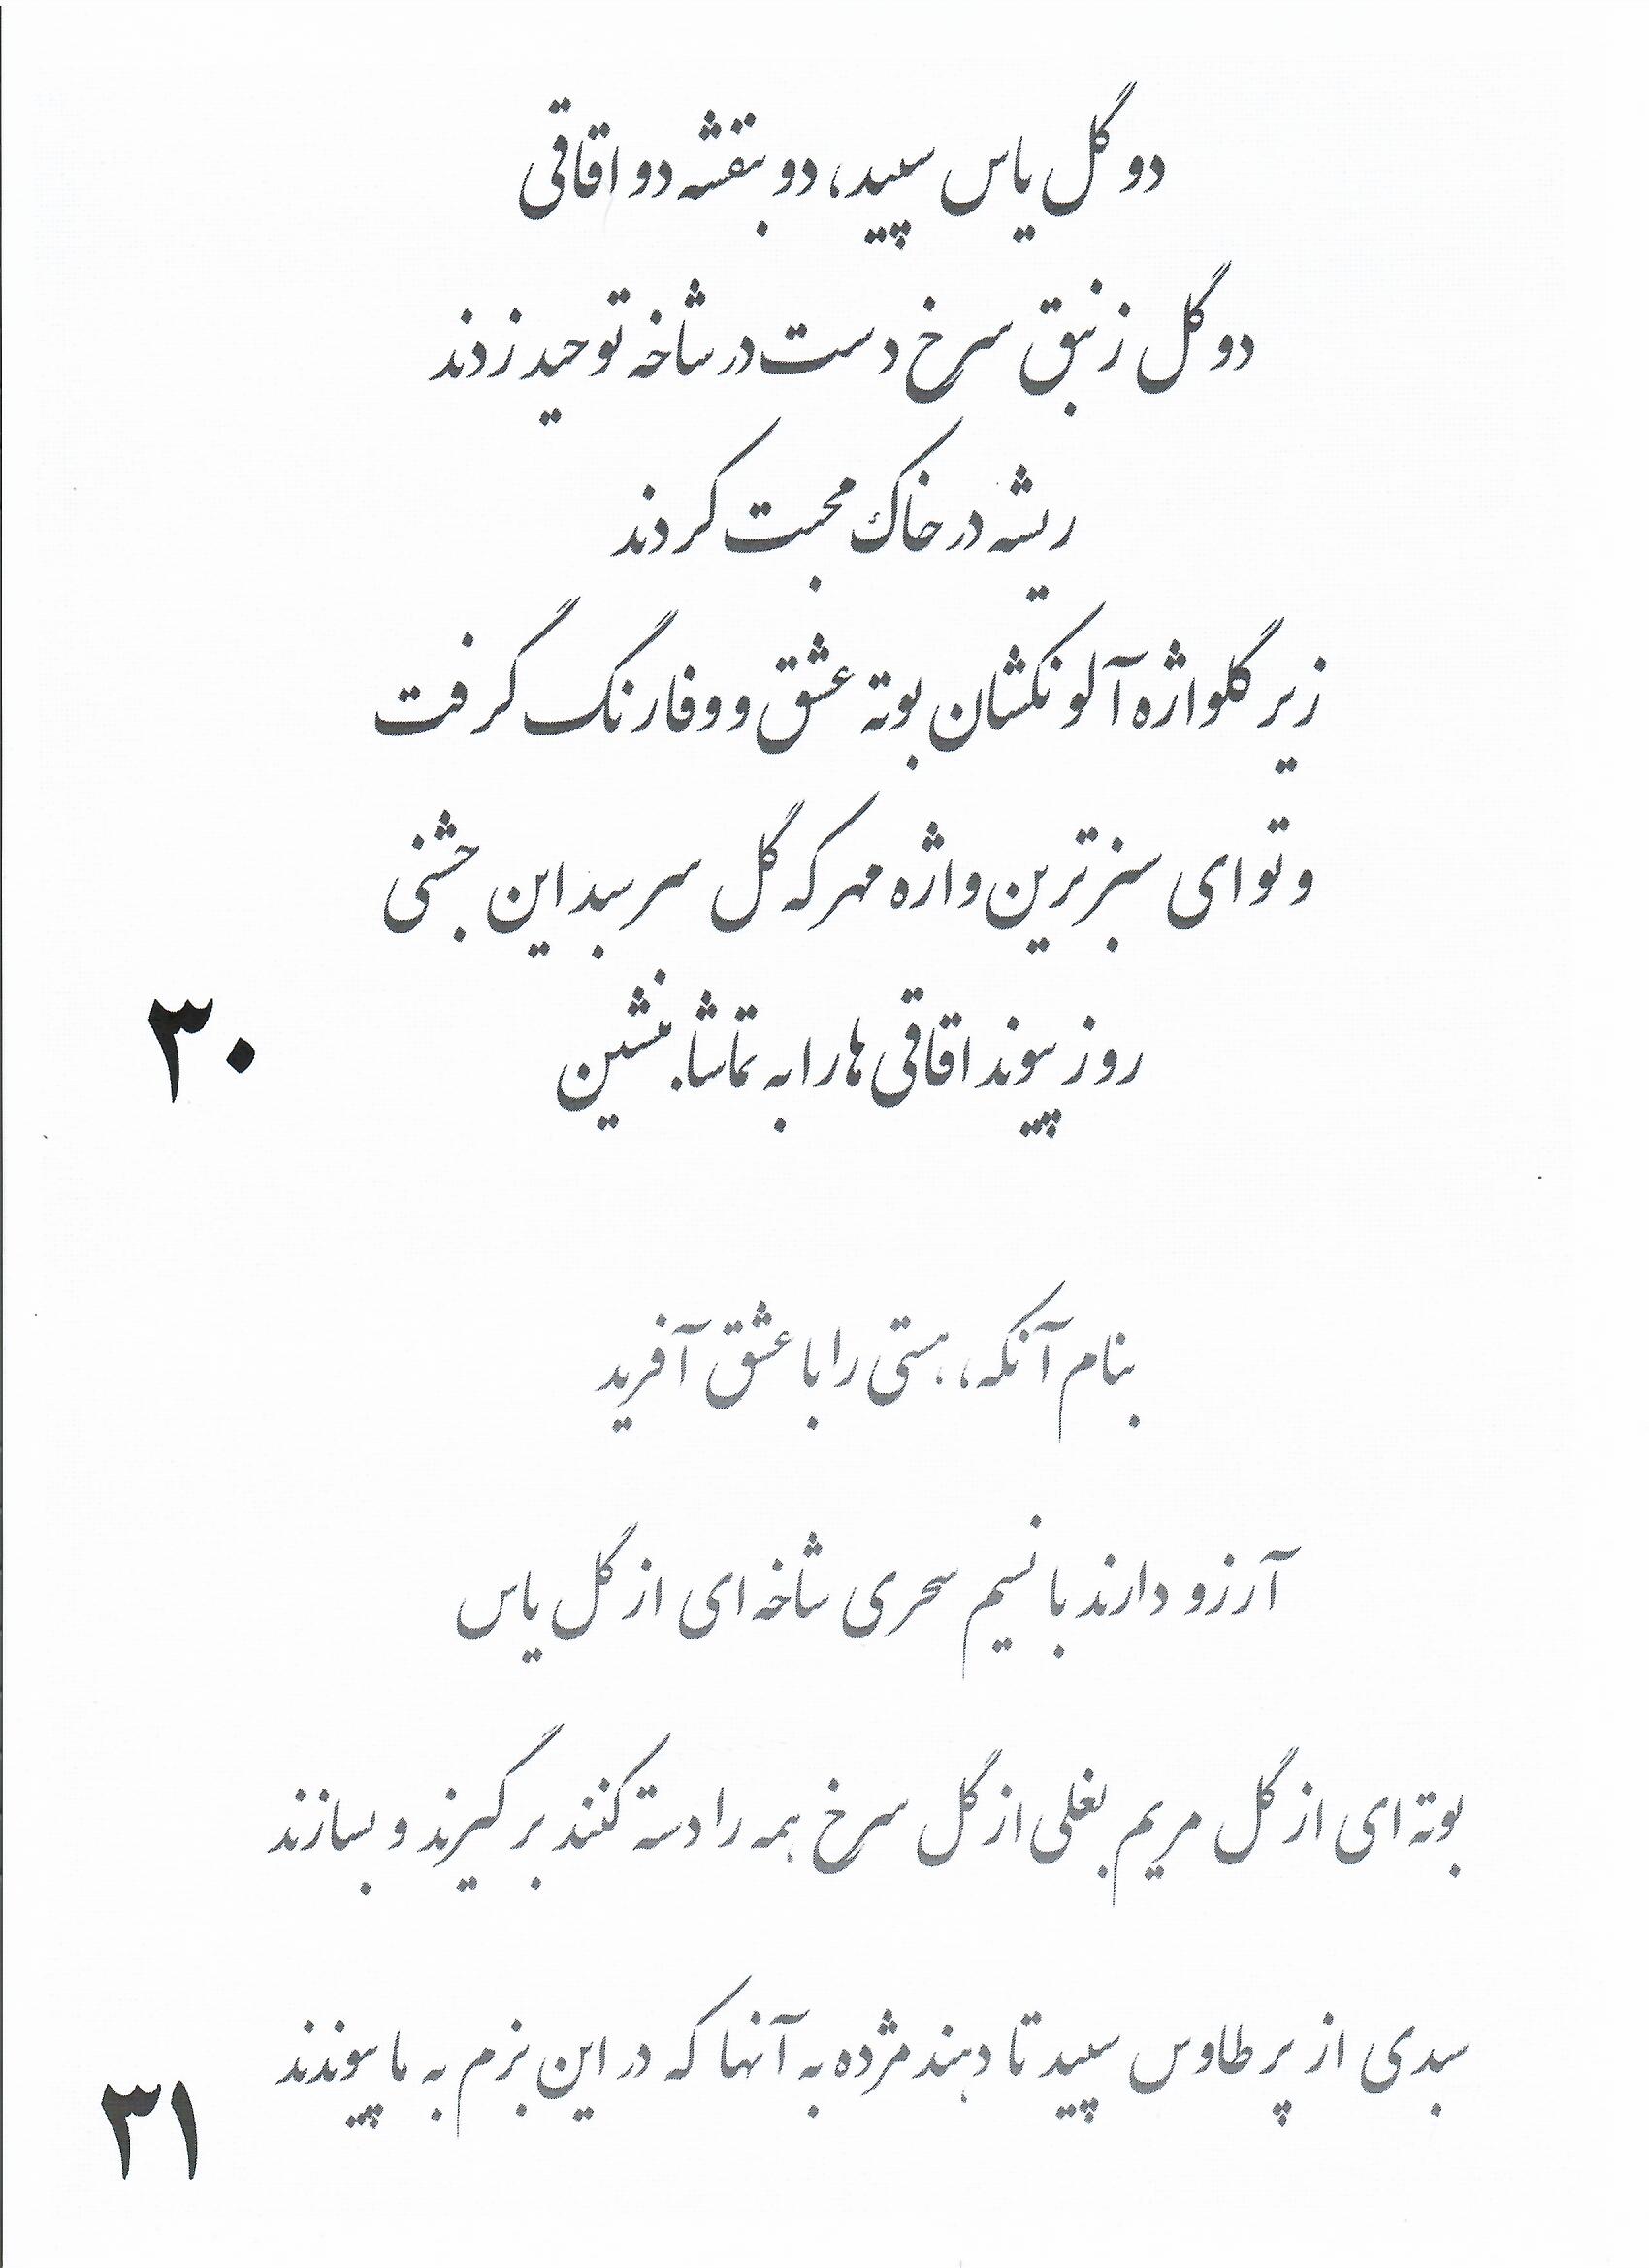 دو گل یاس سپید، دو بنفشه دو اقاقی
دو گل زنبق سرخ دست در شاخه توحید زدند
ریشه در خاک محبت کردند
زیر گلواژه آلونکشان بوته عشق و وفا رنگ گرفت
و تو ای سبزترین واژه مهر که گل سرسبد این جشنی
روز پیوند اقاقی ها را به تماشا بنشین
۳۰
بنام آنکه، هستی را با عشق آفرید
آرزو دارند با نسیم سحری شاخه ای از گل یاس
بوته ای از گل مریم بغلی از گل سرخ همه را دسته کنند برگیرند و بسازند
سبدی از پر طاوس سپید تا دهند مژده به آنها که در این بزم به ما پیوندند
۳۱